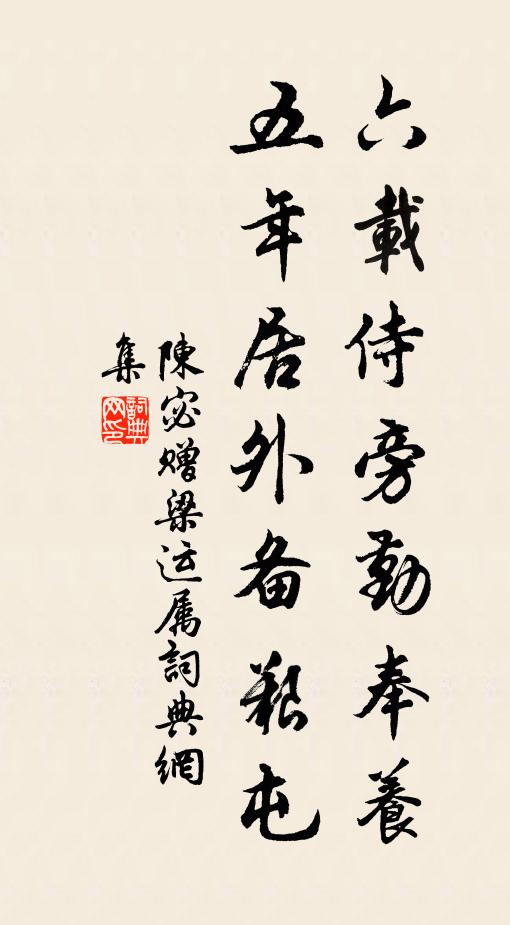 六載侍旁勤奉養
五年居外备艱屯
陳宓赠梁运属詞典網
集
詞典網印